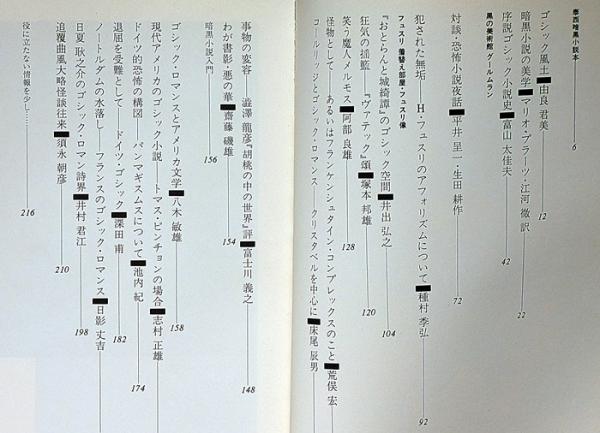 泰西暗黒小説本 6
ゴシック風土■由良 君美 12
暗黒小説の美学■マリオ・プラーツ・江河 徹 訳 22
序説ゴシック小説史■富山 太佳夫 42
黒の美術館 クールムラン
対談・恐怖小説夜話■平井 呈一・生田 耕作 72
犯された無垢──H・フュスリのアフォリズムについて■種村 季弘 92
フュスリ 着替え部屋・フュスリ像
『おとらんと城綺譚』のゴシック空間■井出 弘之 104
狂気の揺籃──『ヴァテック』頌■塚本 邦雄 120
笑う魔人メルモス■阿部 良雄 128
怪物として──あるいはフランケンシュタイン・コンプレックスのこと■荒俣 宏
コールリッジとゴシック・ロマンス──クリスタベルを中心に■床尾 辰男
事物の変容──澁澤 龍彦『胡桃の中の世界』評■富士川 義之 148
わが書影・悪の華■齋藤 磯雄 154
暗黒小説入門 156
ゴシック・ロマンスとアメリカ文学■八木 敏雄 158
現代アメリカのゴシック小説──トマス・ピンチョンの場合■志村 正雄
ドイツ的恐怖の構図──パンマギスムスについて■池内 紀 174
退屈を受難として──ドイツ・ゴシック■深田 甫 182
ノートルダムの水落し──フランスのゴシック・ロマンス■日影 丈吉
日夏 耿之介のゴシック・ロマン詩界■井村 君江 198
追覆曲風大略怪談往来■須永 朝彦 210
役に立たない情報を少し…… 216